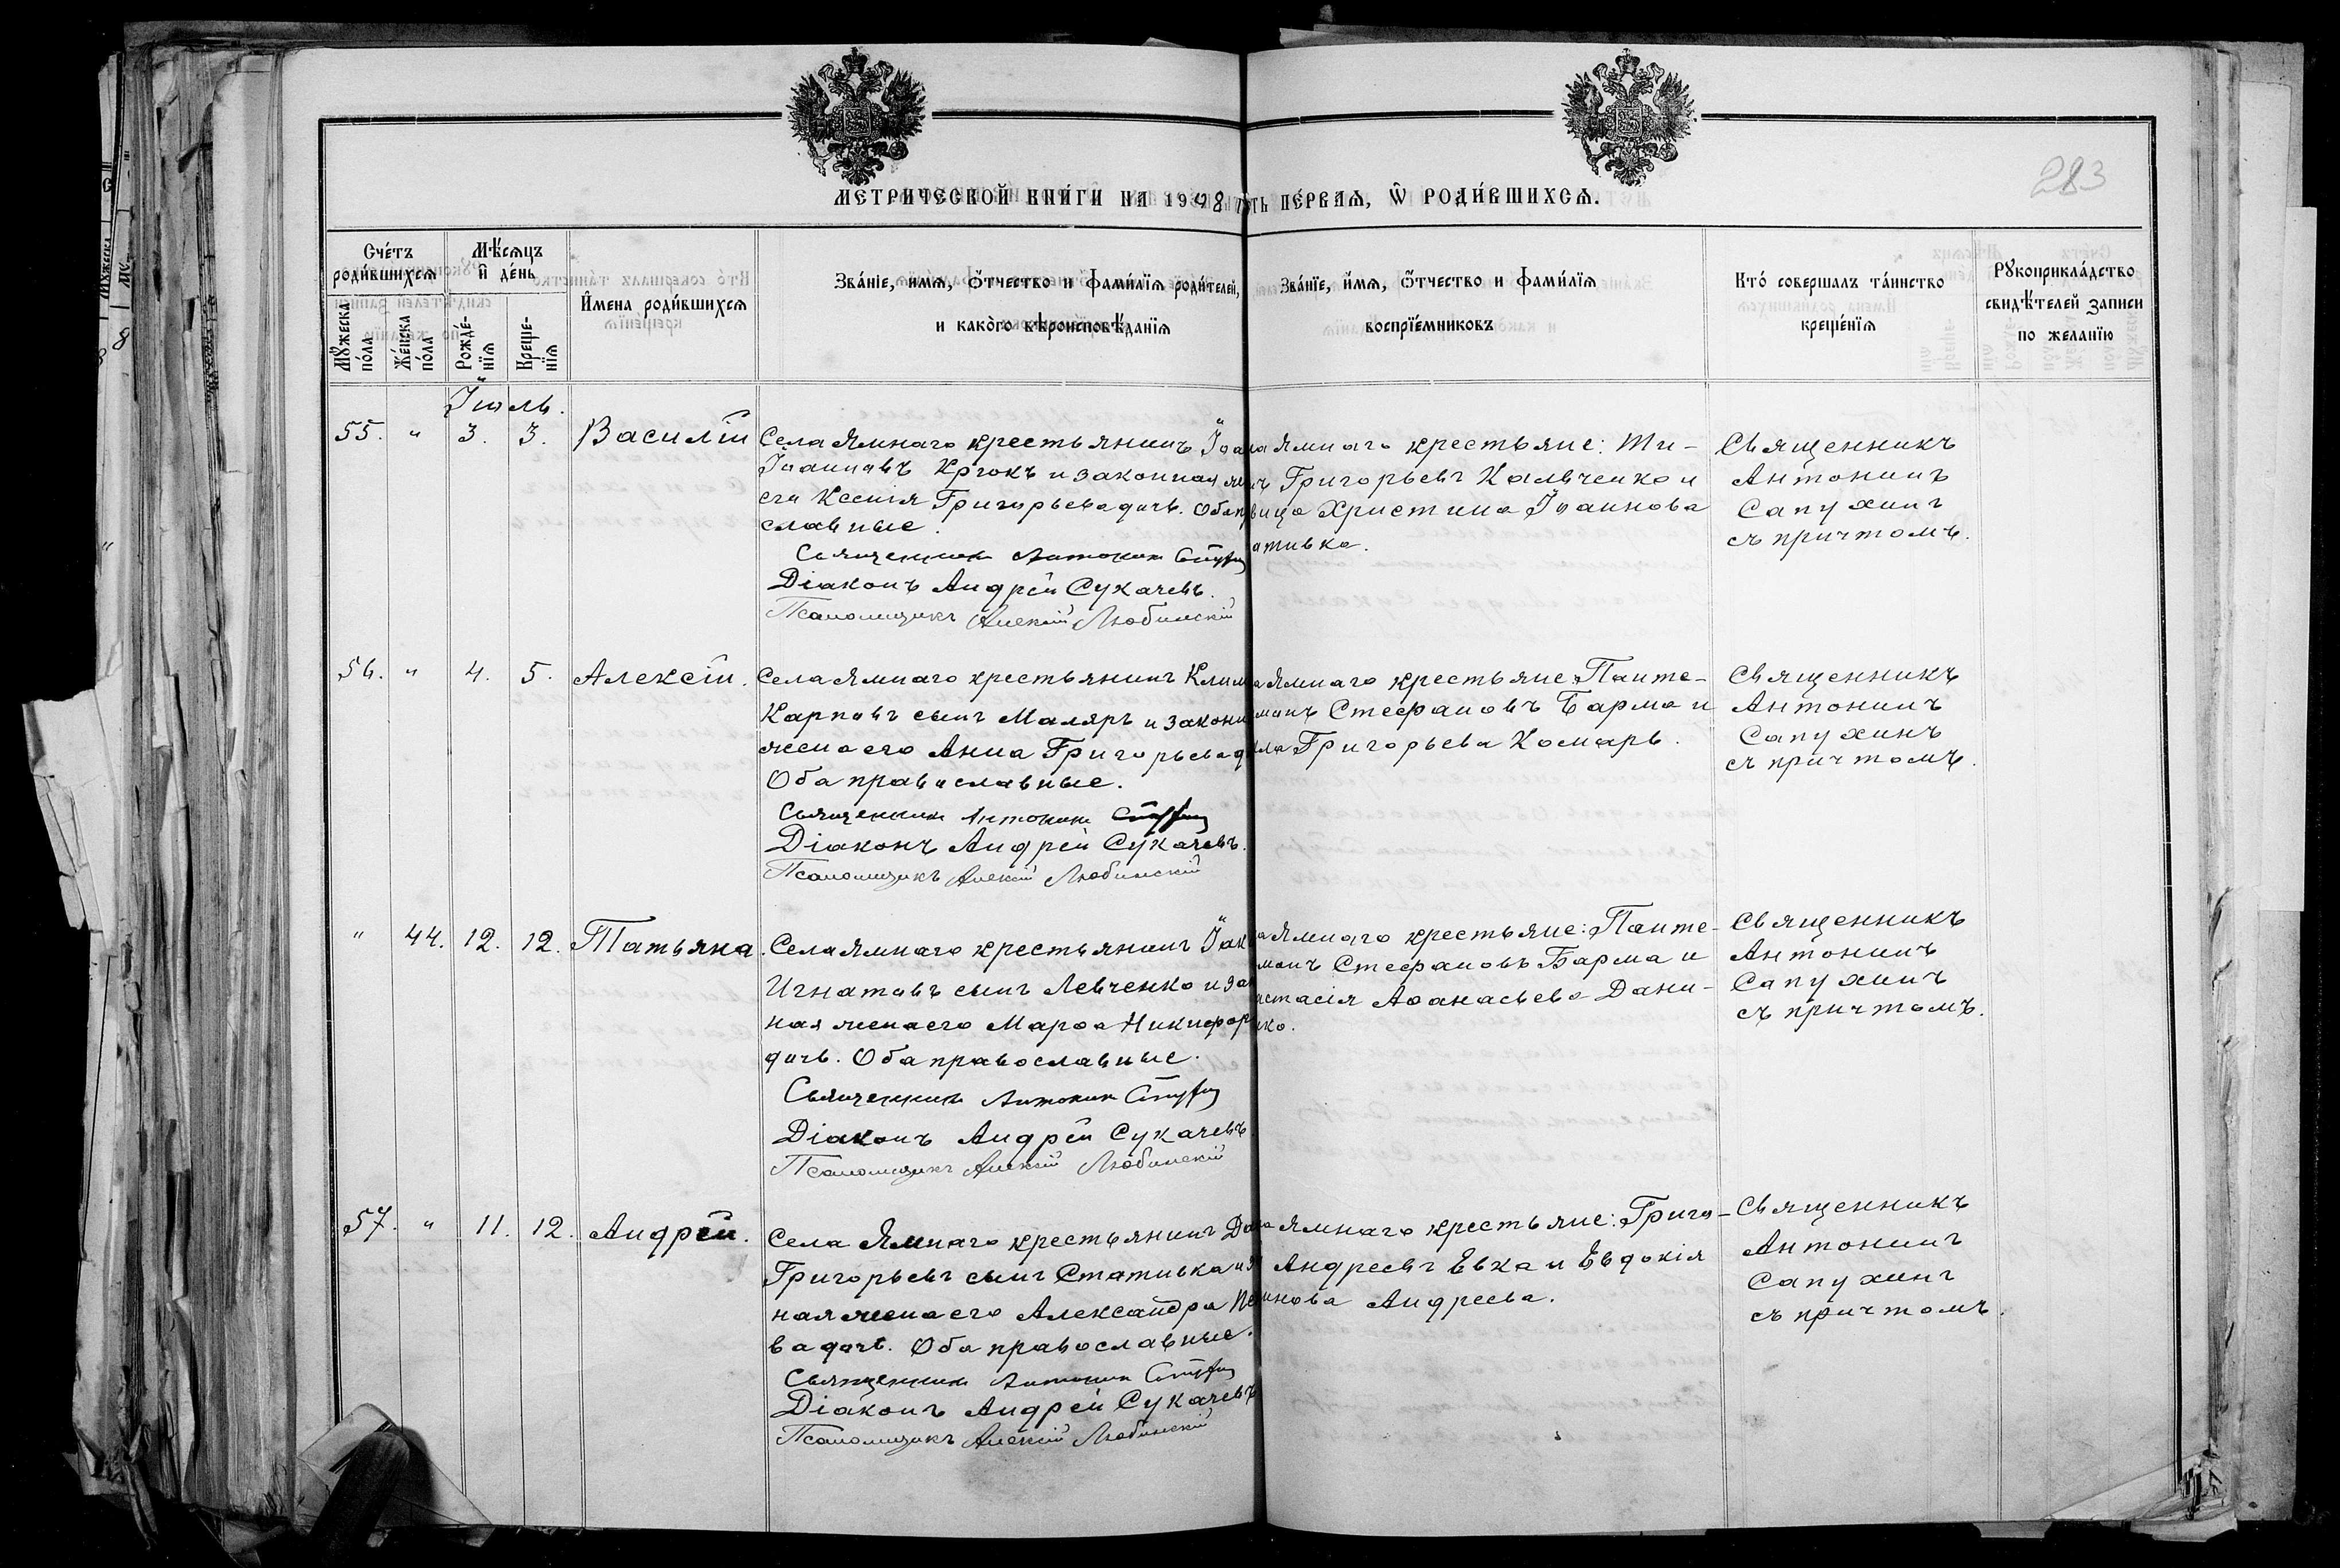 283
МЕТРИЧЕСКОЙ КНИ́ГИ НА 1908 ПЕ́РВАѦ, Ѿ РОДИ́ВШИХСѦ.
Сче́тъ роди́вшихсѧ
Мѣ́сѧцъ и҆ де́нь
И҆мена роди́вшихсѧ
Зва́нїе, и҆мѧ, ѻ҆́тчество и фами́лїѧ роди́телей,
и како́го вѣроисповѣ́данїѧ
Зва́нїе, и҆мѧ, ѻ҆́тчество и фами́лїѧ
воспрїе́мниковъ
Кто́ соверша́лъ та́инство
креще́нїѧ
Рꙋкоприкла́дство
свидѣ́телей записи
по жела́нїю
Мꙋжеска по́ла
Же́нска по́ла
Рожде́нїѧ
Креще́нїѧ
Іюль.
55. " 3. 3. Василій
Села Ямнаго крестьянинъ Іоа
Іоанновъ Крюкъ и законная
его Ксенія Григорьева дочь. Оба
славные.
Священникъ Антонинъ
Діаконъ Андрей Сукачевъ.
Псаломщикъ Алексій Любинскій
Ямнаго крестьяне: Ти-
Григорьевъ Кальченко и
вица Христина Іоаннова
ативка.
Священникъ
Антонинъ
Сапухинъ
съ причтомъ.
56. " 4. 5. Алексій.
Села Ямнаго крестьянинъ Клим
Карповъ сынъ Маляръ и закон
жена его Анна Григорьева
Оба православные.
Священникъ Антонинъ
Діаконъ Андрей Сукачевъ.
Псаломщикъ Алексій Любинскій
Ямнаго крестьяне: Панте-
монъ Стефановъ Барма и
Григорьева Комарь.
Священникъ
Антонинъ
Сапухинъ
съ причтомъ.
" 44. 12. 12. Татьяна.
Села Ямнаго крестьянинъ Іак
Игнатовъ сынъ Левченко и за
ная жена его Марѳа Никифор
дочь. Оба православные.
Священникъ Антонинъ
Діаконъ Андрей Сукачевъ
Псаломщикъ Алексій Любинскій
Ямнаго крестьяне: Панте-
монъ Стефановъ Барма и
стасія Аѳанасьева Дани-
ко.
Священникъ
Антонинъ
Сапухинъ
съ причтомъ.
57. " 11. 12. Андрей.
Села Ямнаго крестьянинъ Да
Григорьевъ сынъ Стативка и
ная жена его Александра
ва дочь. Оба православные.
Священникъ Антонинъ
Діаконъ Андрей Сукачевъ
Псаломщикъ Алексій Любинскій
Ямнаго крестьяне: Григо-
Андреевъ Евка и Евдокія
нова Андреева.
Священникъ
Антонинъ
Сапухинъ
съ причтомъ.